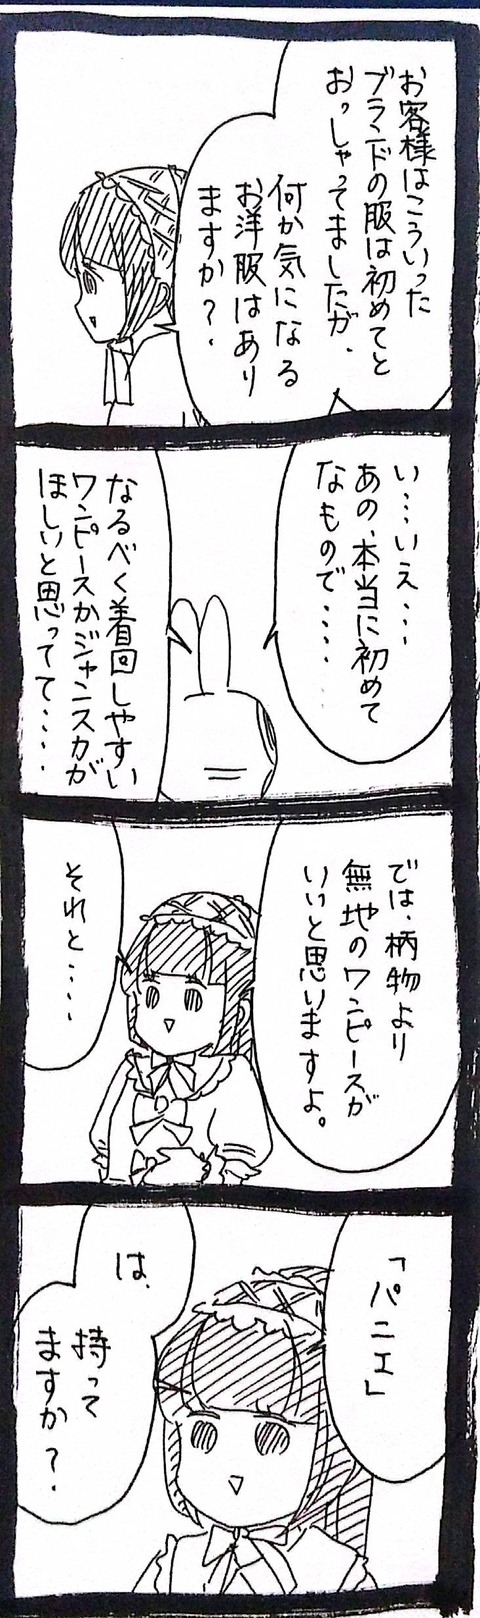 お客様はこういった
ブランドの服は初めてと
おっしゃってましたが、
何か気になる
お洋服はあり
ますか？
い‥‥いえ‥‥
あの、本当に初めて
なもので‥‥‥
なるべく着回しやすい
ワンピースかジャンスカが
ほしいと思ってて‥‥‥
では、柄物より
無地のワンピースが
いいと思いますよ。
それと‥‥‥
「パニエ」
は、
持って
ますか？